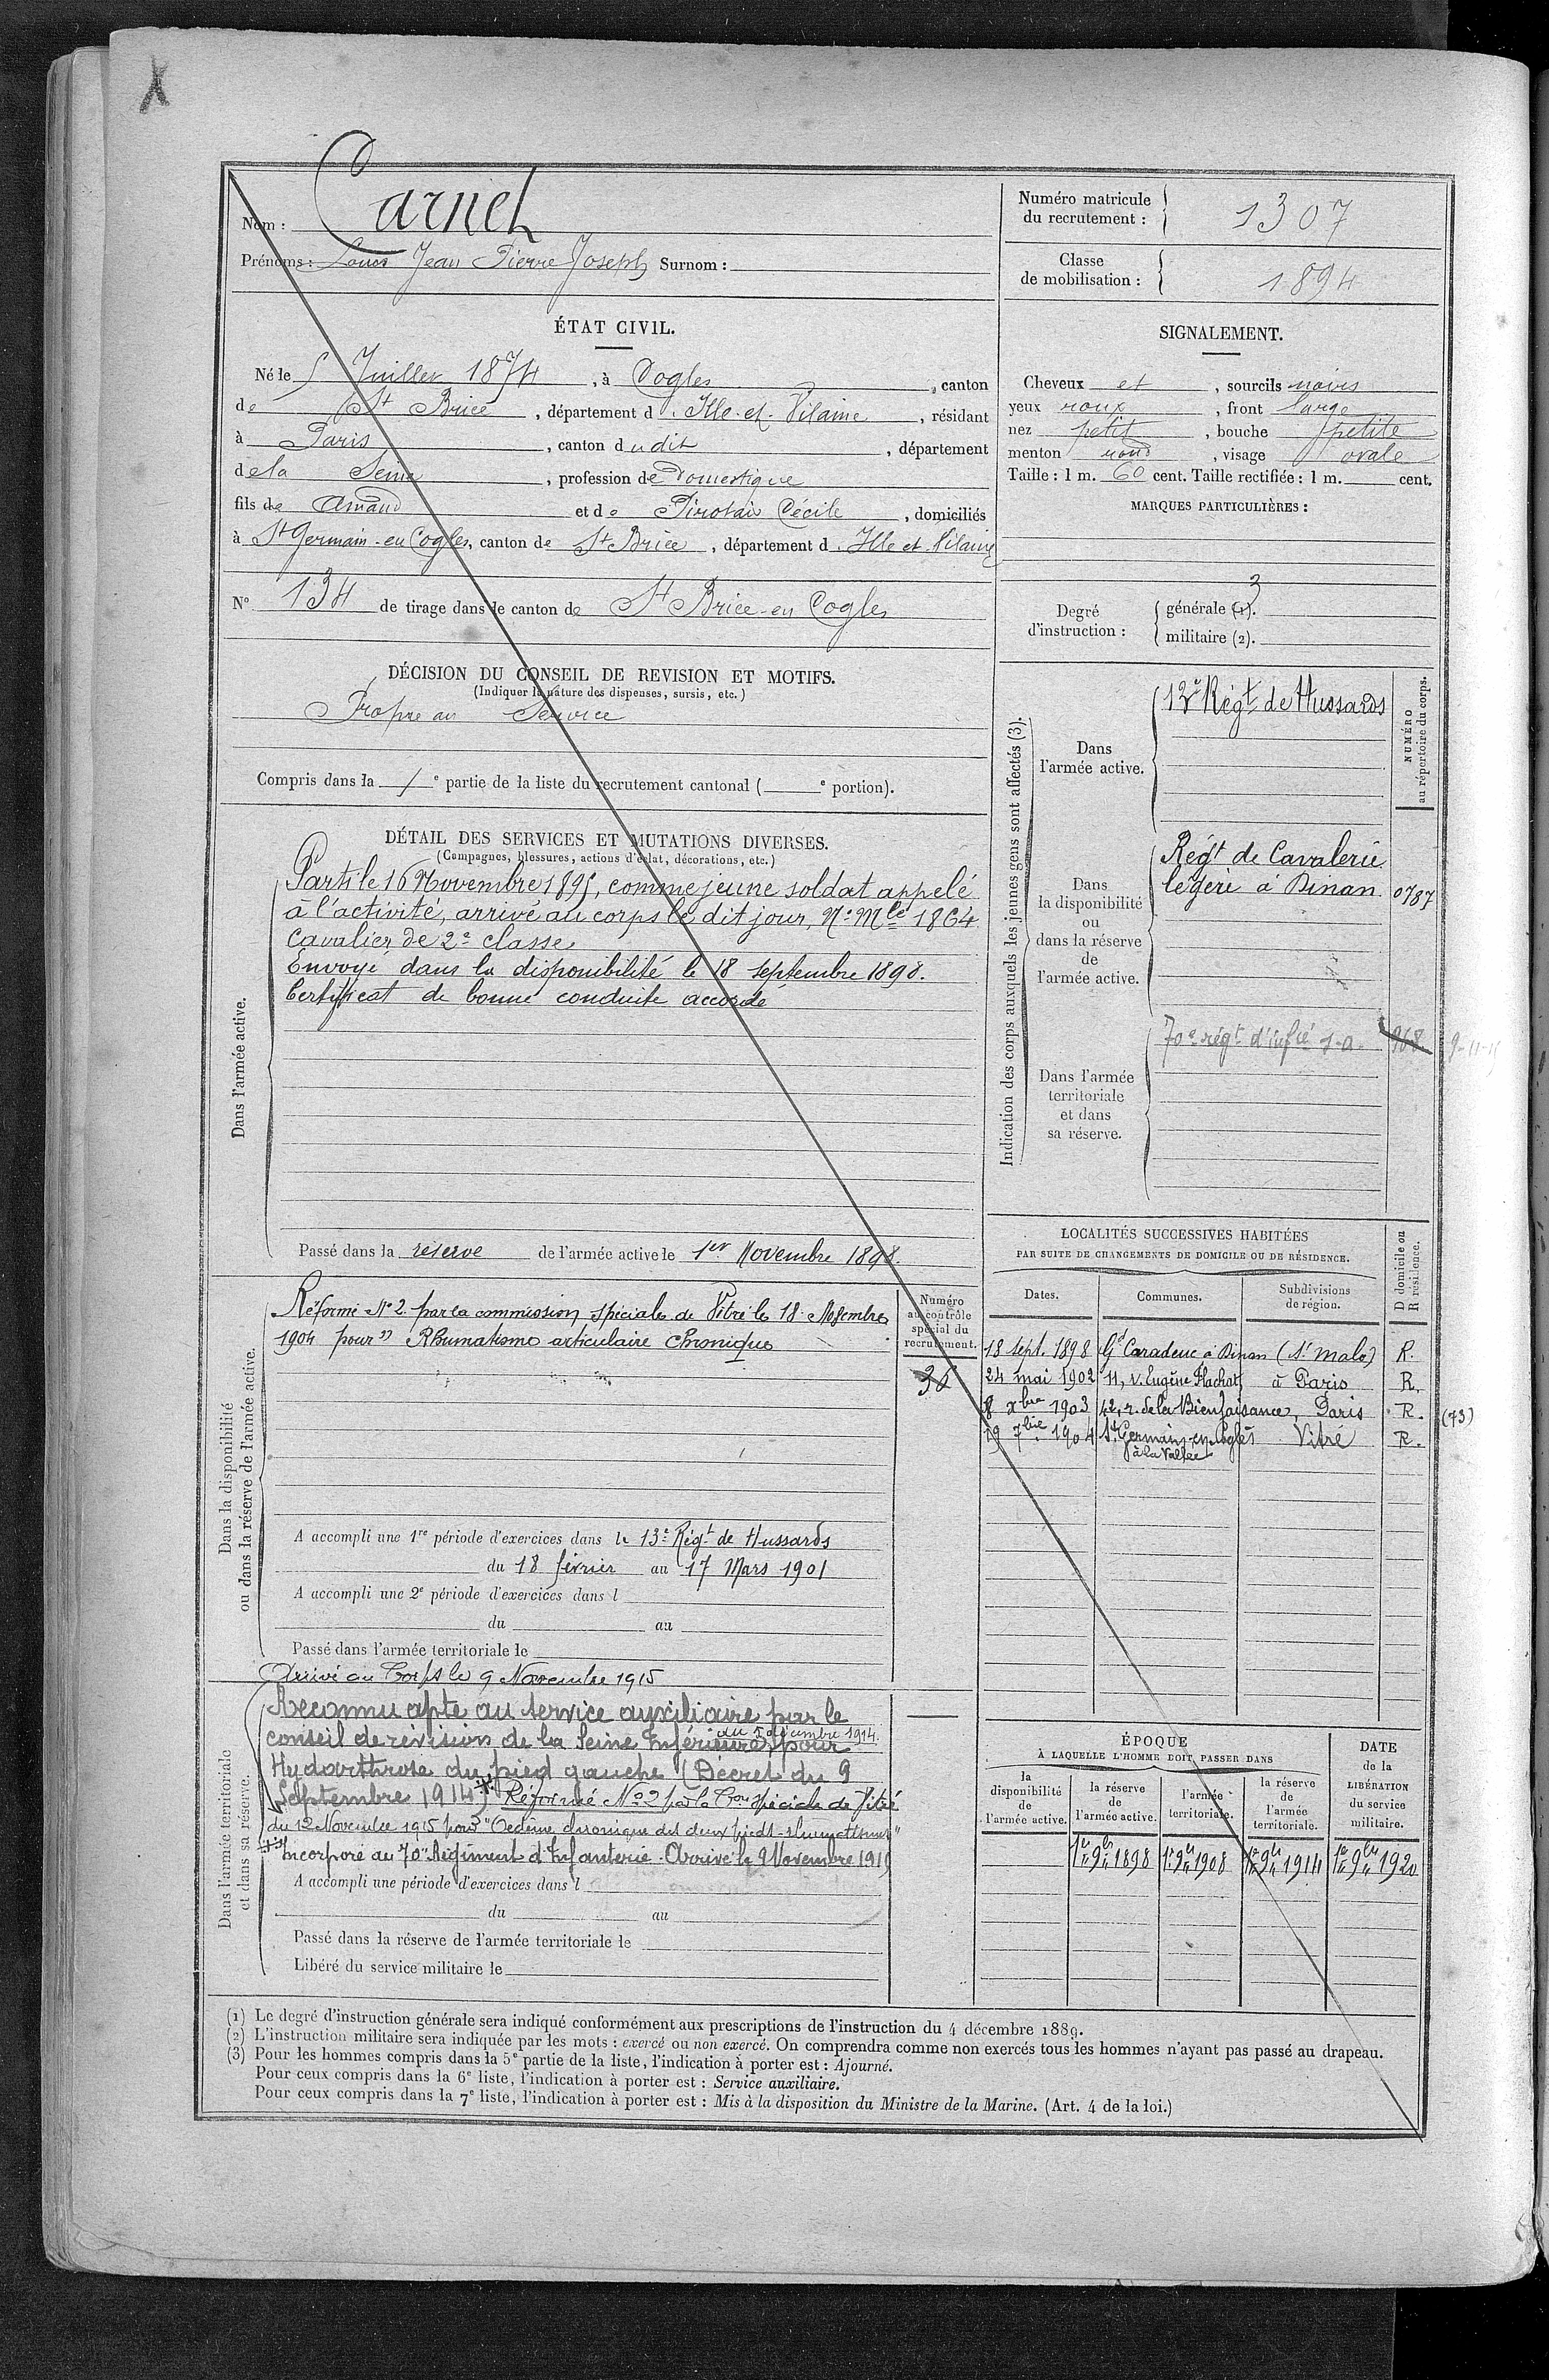 Nom : Carnet
Prénoms : Louis Jean Pierre Joseph Surnom :
Numéro matricule du recrutement : 1307
Classe de mobilisation : 1894
ÉTAT CIVIL.
Né le 5 Juillet 1874, à Cogles, canton
de St Brice, département d. Ille-et-Vilaine, résidant
à Paris, canton dudit, département
de la Seine, profession de Domestique
fils de Amand et de Cécile, domiciliés
à St Germain-en-Cogles, canton de St Brice, département d. Ille et Vilaine
N° 134 de tirage dans le canton de St Brice-en Cogles
SIGNALEMENT.
Cheveux et, sourcils noirs
yeux roux, front large
nez petit, bouche petite
menton rond, visage ovale
Taille : 1 m. 60 cent. Taille rectifiée : 1 m. cent.
MARQUES PARTICULIÈRES :
Degré d'instruction :
générale (1). 3
militaire (2).
DÉCISION DU CONSEIL DE REVISION ET MOTIFS.
(Indiquer la nature des dispenses, sursis, etc.)
Propre au Service
Compris dans la 1e partie de la liste du recrutement cantonal ( e portion).
DÉTAIL DES SERVICES ET MUTATIONS DIVERSES.
(Campagnes, blessures, actions d'éclat, décorations, etc.)
Dans l'armée active.
Parti le 16 Novembre 1895, comme jeune soldat appelé
à l'activité, arrivé au corps le dit jour, N° Mle 1864
Cavalier de 2e classe
Envoyé dans la disponibilité le 18 septembre 1898.
Certificat de bonne conduite accordé
Passé dans la réserve de l'armée active le 1er Novembre 1898.
Indication des corps auxquels les jeunes gens sont affectés (3).
NUMÉRO au répertoire du corps.
Dans l'armée active.
Régt de Hussards
Dans la disponibilité ou dans la réserve de l'armée active.
Régt de Cavalerie
légère à Dinan 0787
Dans l'armée territoriale et dans sa réserve.
70e régt d'infie 968. 9-11-15
Dans la disponibilité ou dans la réserve de l'armée active.
Réformé N° 2 par la commission spéciale de Vitré le 18 Novembre
1904 pour " Rhumatisme articulaire chronique
Numéro au contrôle spécial du recrutement.
36
A accompli une 1re période d'exercices dans le 13e Régt de Hussards
du 18 février au 17 Mars 1901
A accompli une 2e période d'exercices dans l
du au
Passé dans l'armée territoriale le
LOCALITÉS SUCCESSIVES HABITÉES
PAR SUITE DE CHANGEMENTS DE DOMICILE OU DE RÉSIDENCE.
Dates. Communes. Subdivisions de région. D domicile ou R résidence.
18 sept. 1898 Gd Caradeuc à Dinan (St Malo) R.
24 mai 1902 11, r. Eugène Flachat, à Paris R.
8 xbre 1903 42, r. de la Bienfaisance, Paris R. (73)
19 7bre 1904 St Germain-en-Cogles Vitré R.
à la Vallée
Arrivé au Corps le 9 Novembre 1915
Dans l'armée territoriale et dans sa réserve.
Reconnu apte au service auxiliaire par le
du 5 décembre 1914.
conseil de révision de la Seine Inférieure, pour
Hydarthrose du pied gauche (Décret du 9
Septembre 1914) Réformé N° 2 par la Con spéciale de Vitré
du 12 Novembre 1915 pour "Oedème chronique des deux pieds - rhumatismes"
Incorporé au 70e Régiment d'Infanterie. Arrivé le 9 Novembre 1915
A accompli une période d'exercices dans l
du au
Passé dans la réserve de l'armée territoriale le
Libéré du service militaire le
ÉPOQUE
À LAQUELLE L'HOMME DOIT PASSER DANS
la disponibilité de l'armée active. la réserve de l'armée active. l'armée territoriale. la réserve de l'armée territoriale. DATE de la LIBÉRATION du service militaire.
1er 9bre 1898 1er 9bre 1908 1er 9bre 1914 1er 9bre 1920
(1) Le degré d'instruction générale sera indiqué conformément aux prescriptions de l'instruction du 4 décembre 1889.
(2) L'instruction militaire sera indiquée par les mots : exercé ou non exercé. On comprendra comme non exercés tous les hommes n'ayant pas passé au drapeau.
(3) Pour les hommes compris dans la 5e partie de la liste, l'indication à porter est : Ajourné.
Pour ceux compris dans la 6e liste, l'indication à porter est : Service auxiliaire.
Pour ceux compris dans la 7e liste, l'indication à porter est : Mis à la disposition du Ministre de la Marine. (Art. 4 de la loi.)